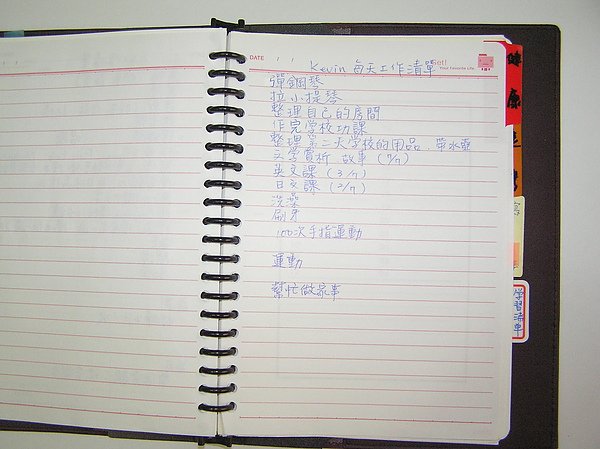 DATE / /
Get!
Your Favorite Life
Kevin 每天工作清單
彈鋼琴
拉小提琴
整理自己的房間
作完學校功課
整理第二天學校的用品、帶水壺
文學賞析 故事 (7/7)
英文課 (3/7)
日文課 (2/7)
洗澡
刷牙
100次手指運動
運動
幫忙做家事
健康
學習清單